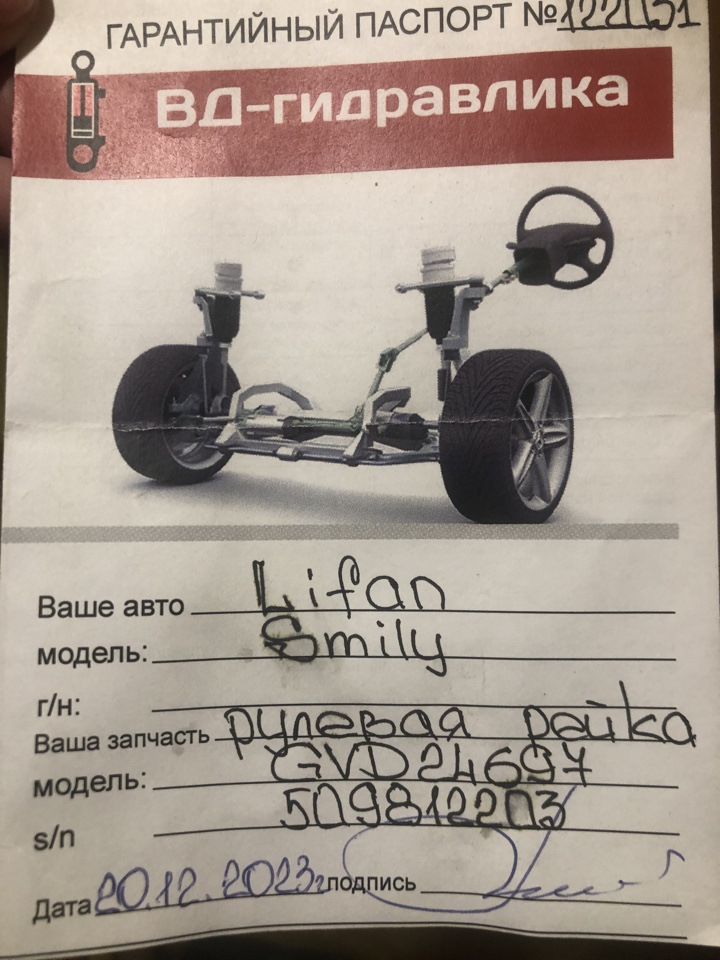 ГАРАНТИЙНЫЙ ПАСПОРТ №122031
ВД-гидравлика
Ваше авто Lifan
модель: Smily
г/н:
Ваша запчасть рулевая рейка
модель: GVD24697
s/n 509812203
Дата 20.12.2023г подпись